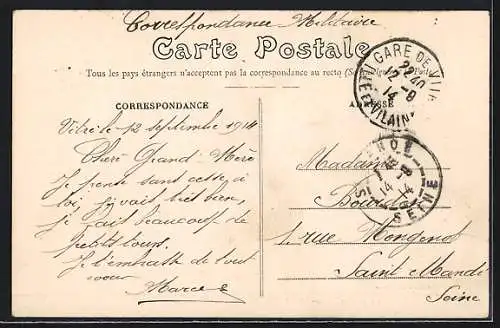 Correspondance Militaire
Carte Postale
Tous les pays étrangers n'acceptent pas la correspondance au recto (Se
CORRESPONDANCE
ADRESSE
GARE DE VIT
22 40
12 - 9
14
ILLE ET VILAINE
SEINE
Vitré le 12 septembre 1914
Cheri Grand-Mère
Je pense sans cesse à
toi, je vait bien bien,
je fait beaucoup de
petits tours.
Je t'embrasse de tout
coeur
Marcel
Madame
1, rue Mongenot
Saint Mandé
Seine